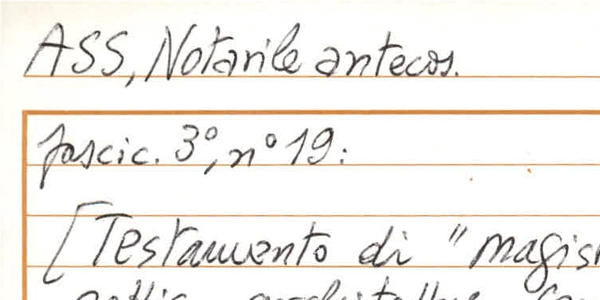 ASS, Notarile antecos.
fascic. 3°, n° 19:
[Testamento di "magist